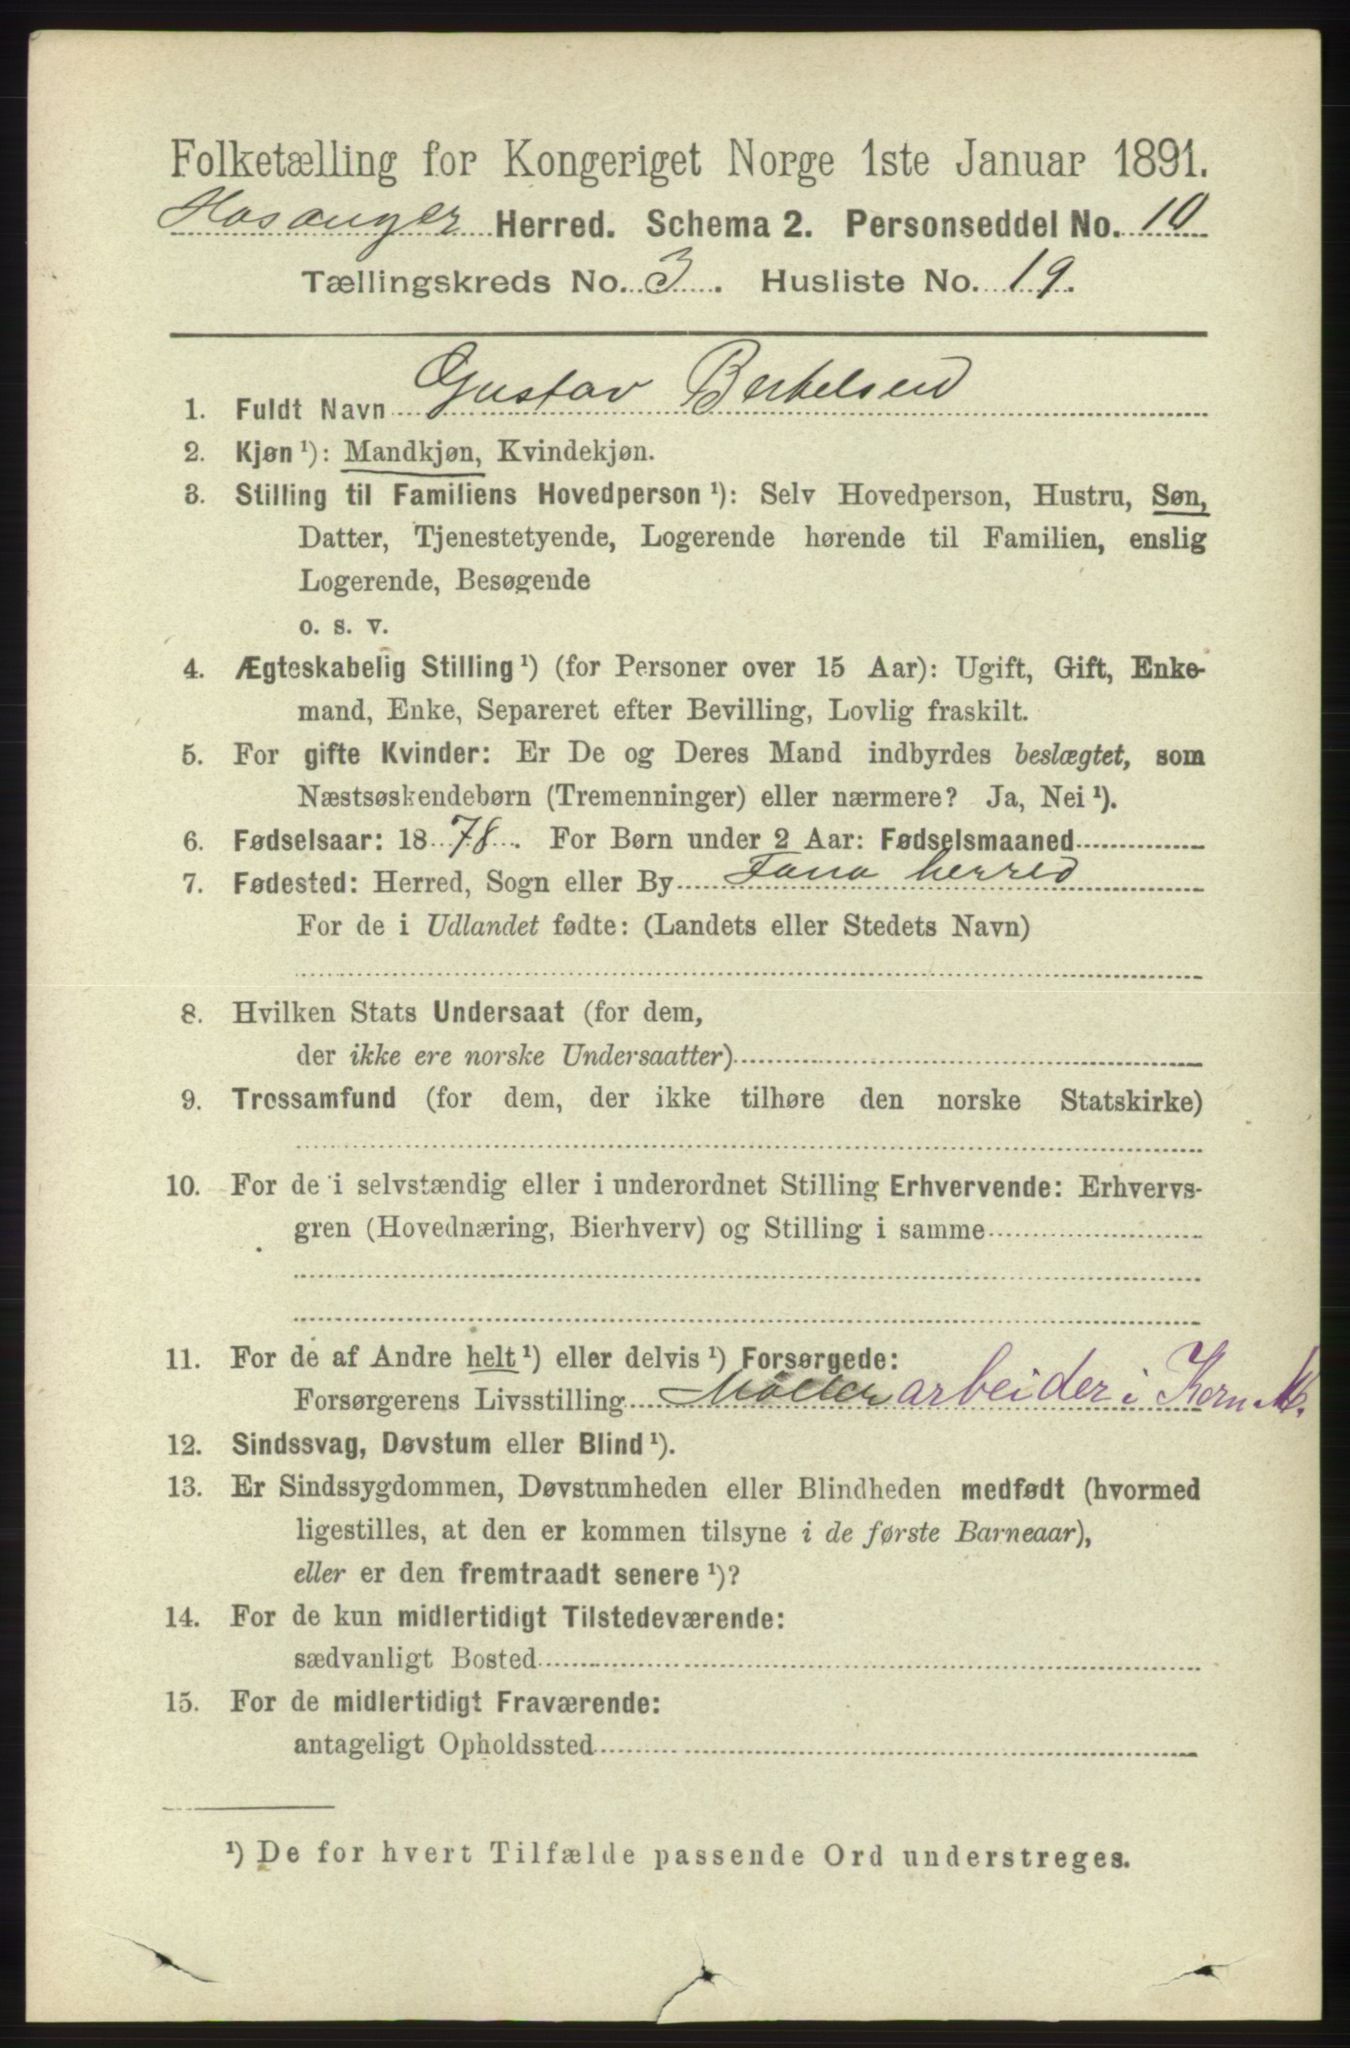 Folketælling for Kongeriget Norge 1ste Januar 1891.
Hosanger Herred. Schema 2. Personseddel No. 10
Tællingskreds No. 3. Husliste No. 19.
1. Fuldt Navn Gustav Berthelsen
2. Kjøn ¹): Mandkjøn, Kvindekjøn.
3. Stilling til Familiens Hovedperson ¹): Selv Hovedperson, Hustru, Søn,
Datter, Tjenestetyende, Logerende hørende til Familien, enslig
Logerende, Besøgende
o. s. v.
4. Ægteskabelig Stilling ¹) (for Personer over 15 Aar): Ugift, Gift, Enke-
mand, Enke, Separeret efter Bevilling, Lovlig fraskilt.
5. For gifte Kvinder: Er De og Deres Mand indbyrdes beslægtet, som
Næstsøskendebørn (Tremenninger) eller nærmere? Ja, Nei ¹).
6. Fødselsaar: 1878. For Børn under 2 Aar: Fødselsmaaned
7. Fødested: Herred, Sogn eller By Fana herred
For de i Udlandet fødte: (Landets eller Stedets Navn)
8. Hvilken Stats Undersaat (for dem,
der ikke ere norske Undersaatter)
9. Trossamfund (for dem, der ikke tilhøre den norske Statskirke)
10. For de i selvstændig eller i underordnet Stilling Erhvervende: Erhvervs-
gren (Hovednæring, Bierhverv) og Stilling i samme
11. For de af Andre helt ¹) eller delvis ¹) Forsørgede:
Forsørgerens Livsstilling Møller arbeider i Korn M.
12. Sindssvag, Døvstum eller Blind ¹).
13. Er Sindssygdommen, Døvstumheden eller Blindheden medfødt (hvormed
ligestilles, at den er kommen tilsyne i de første Barneaar),
eller er den fremtraadt senere ¹)?
14. For de kun midlertidigt Tilstedeværende:
sædvanligt Bosted
15. For de midlertidigt Fraværende:
antageligt Opholdssted
¹) De for hvert Tilfælde passende Ord understreges.